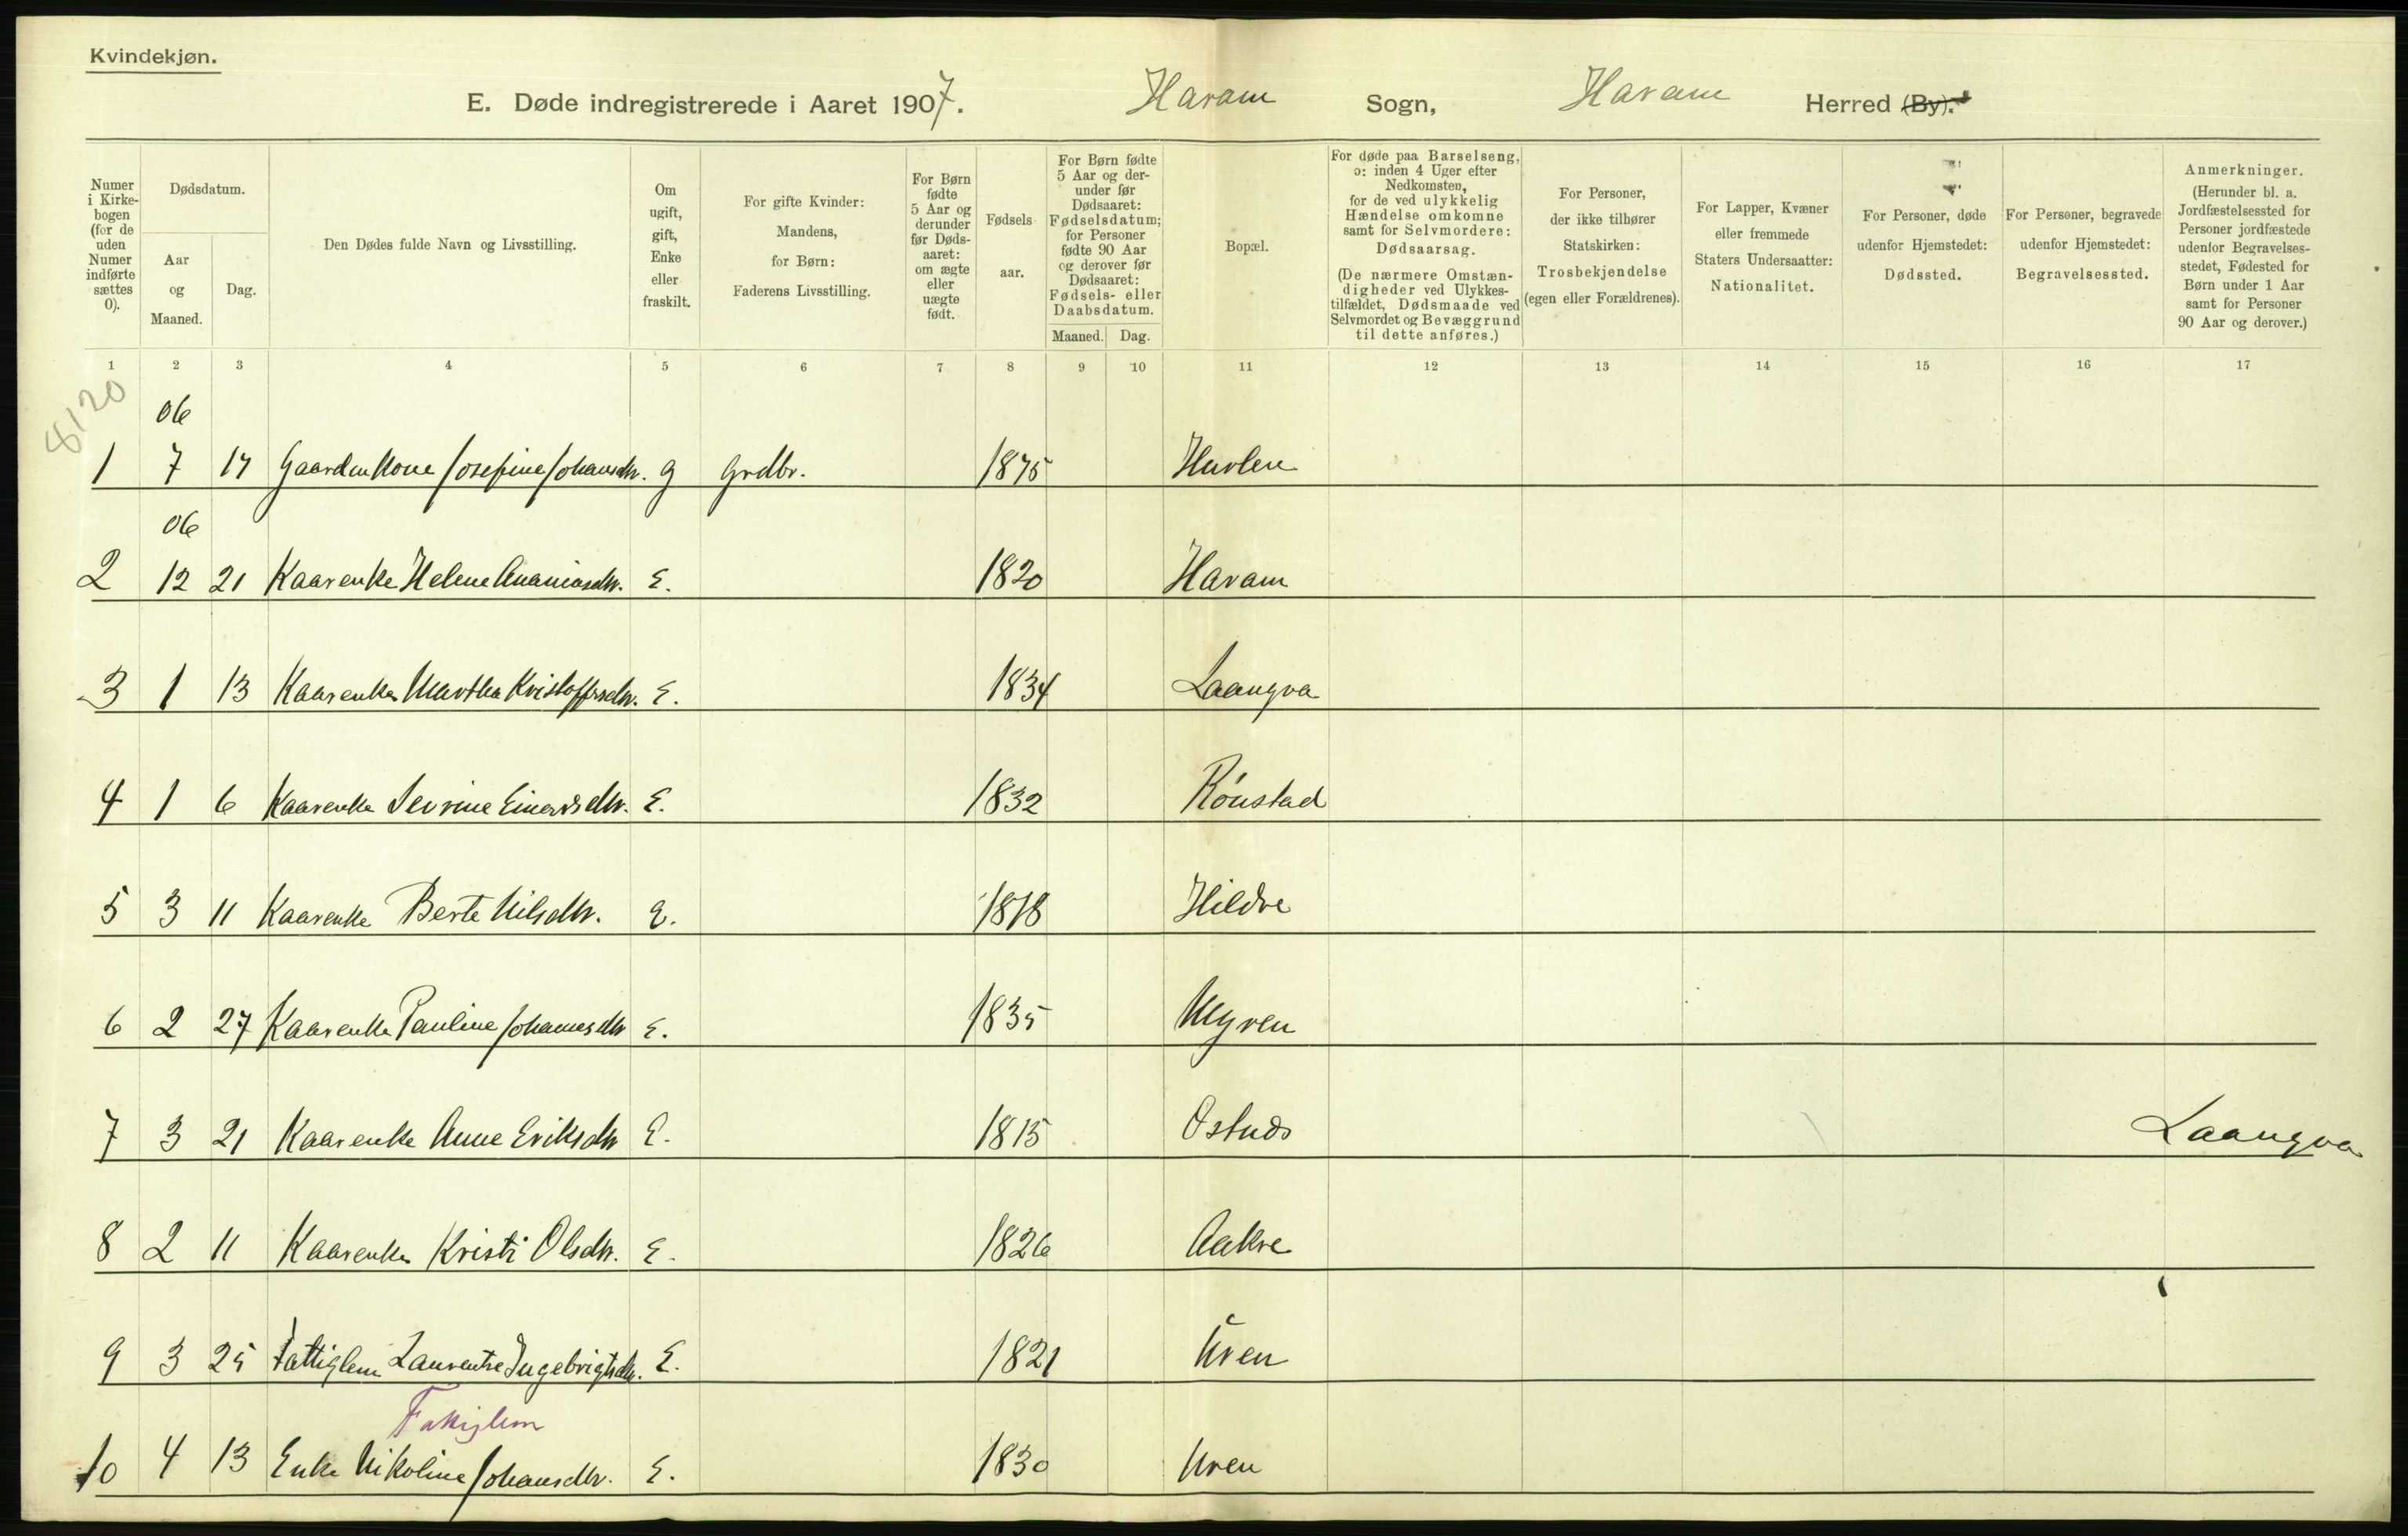 Kvindekjøn.
E. Døde indregistrerede i Aaret 1907. Haram Sogn, Haram Herred (By).
Numer i Kirkebogen (for de uden Numer indførte sættes 0).
Dødsdatum.
Aar og Maaned.
Dag.
Den Dødes fulde Navn og Livsstilling.
Om ugift, gift, Enke eller fraskilt.
For gifte Kvinder: Mandens, for Børn: Faderens Livsstilling.
For Børn fødte 5 Aar og derunder før Dødsaaret: om ægte eller uægte født.
Fødselsaar.
For Børn fødte 5 Aar og derunder før Dødsaaret: Fødselsdatum; for Personer fødte 90 Aar og derover før Dødsaaret: Fødsels- eller Daabsdatum.
Maaned. Dag.
Bopæl.
For døde paa Barselseng, ɔ: inden 4 Uger efter Nedkomsten, for de ved ulykkelig Hændelse omkomne samt for Selvmordere: Dødsaarsag.
(De nærmere Omstændigheder ved Ulykkestilfældet, Dødsmaade ved Selvmordet og Bevæggrund til dette anføres.)
For Personer, der ikke tilhører Statskirken: Trosbekjendelse (egen eller Forældrenes).
For Lapper, Kvæner eller fremmede Staters Undersaatter: Nationalitet.
For Personer, døde udenfor Hjemstedet: Dødssted.
For Personer, begravede udenfor Hjemstedet: Begravelsessted.
Anmerkninger. (Herunder bl. a. Jordfæstelsessted for Personer jordfæstede udenfor Begravelsesstedet, Fødested for Børn under 1 Aar samt for Personer 90 Aar og derover.)
1 2 3 4 5 6 7 8 9 10 11 12 13 14 15 16 17
8120
06
1 7 17 Gaardmkone Josefine Johansdtr. g Grdbr. 1875 Hurlen
06
2 12 21 Kaarenke Helene Ananiasdtr. E. 1820 Haram
3 1 13 Kaarenke Martha Kristoffersdtr. E. 1834 Laangva
4 1 6 Kaarenke Sevrine Einersdtr. E. 1832 Rönstad
5 3 11 Kaarenke Berte Nilsdtr. E. 1818 Hildre
6 2 27 Kaarenke Pauline Johannesdtr E. 1835 Myren
7 3 21 Kaarenke Anne Eriksdtr E. 1815 Ostnes Laangva
8 2 11 Kaarenke Kristi Olsdtr. E. 1826 Aakre
9 3 25 Fattiglem Laurentse Ingebrigtsdtr. E. 1821 Uren
Fattiglem
10 4 13 Enke Nikoline Johansdtr. E. 1830 Uren